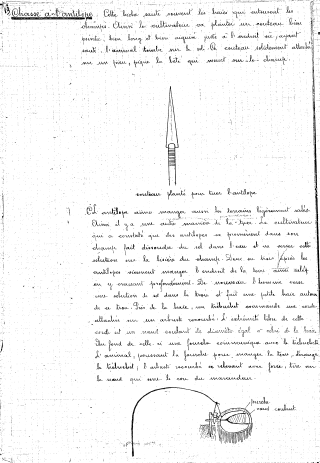 Chasse à l'antilope. Cette biche saute souvent les haies qui entourent les
champs. Aussi le cultivateur va planter un couteau bien
pointu, bien long et bien aiguisé juste à l'endroit où, ayant
sauté, l'animal tombe sur le sol. Ce couteau solidement attaché
sur un pieu, pique la bête qui meurt sur-le-champ.
couteau planté pour tuer l'antilope
L'antilope aime manger aussi les terrains légèrement salés.
Aussi il y a une autre manière de la tuer. Le cultivateur
qui a constaté que des antilopes se promènent dans son
champ fait dissoudre du sel dans l'eau et va verser cette
solution sur la lisière du champ. Dans un trou. Après les
antilopes viennent manger l'endroit de la terre ainsi salée
en y creusant profondément. De nouveau l'homme verse
une solution de sel dans le trou et fait une petite haie autour
de ce trou. Près de la haie, un trébuchet commande une corde
attachée sur un arbuste recourbé. L'extrémité libre de cette
corde est un nœud coulant de diamètre égal à celui de la haie.
Du fond de celle-ci une fourche communique avec le trébuchet.
L'animal, poussant la fourche pour manger la terre, dérange
le trébuchet; l'arbuste recourbé se relevant avec force, tire sur
le nœud qui serre le cou du maraudeur.
fourche
nœud coulant